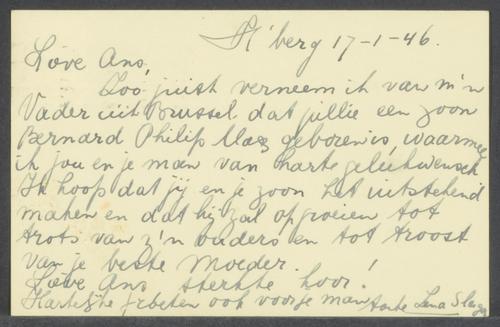 H'berg 17-1-46.
Lieve Ans,
Zoo juist verneem ik van m'n
Vader uit Brussel dat jullie een zoon
Bernard Philip geboren is, waarmee
ik jou en je man van harte gelukwensch
Ik hoop dat jij en je zoon het uitstekend
maken en dat hij zal opgroeien tot
trots van z'n ouders en tot troost
van je beste Moeder.
Lieve Ans sterkte hoor!
Hartelijke ook voor je man Tante Lena